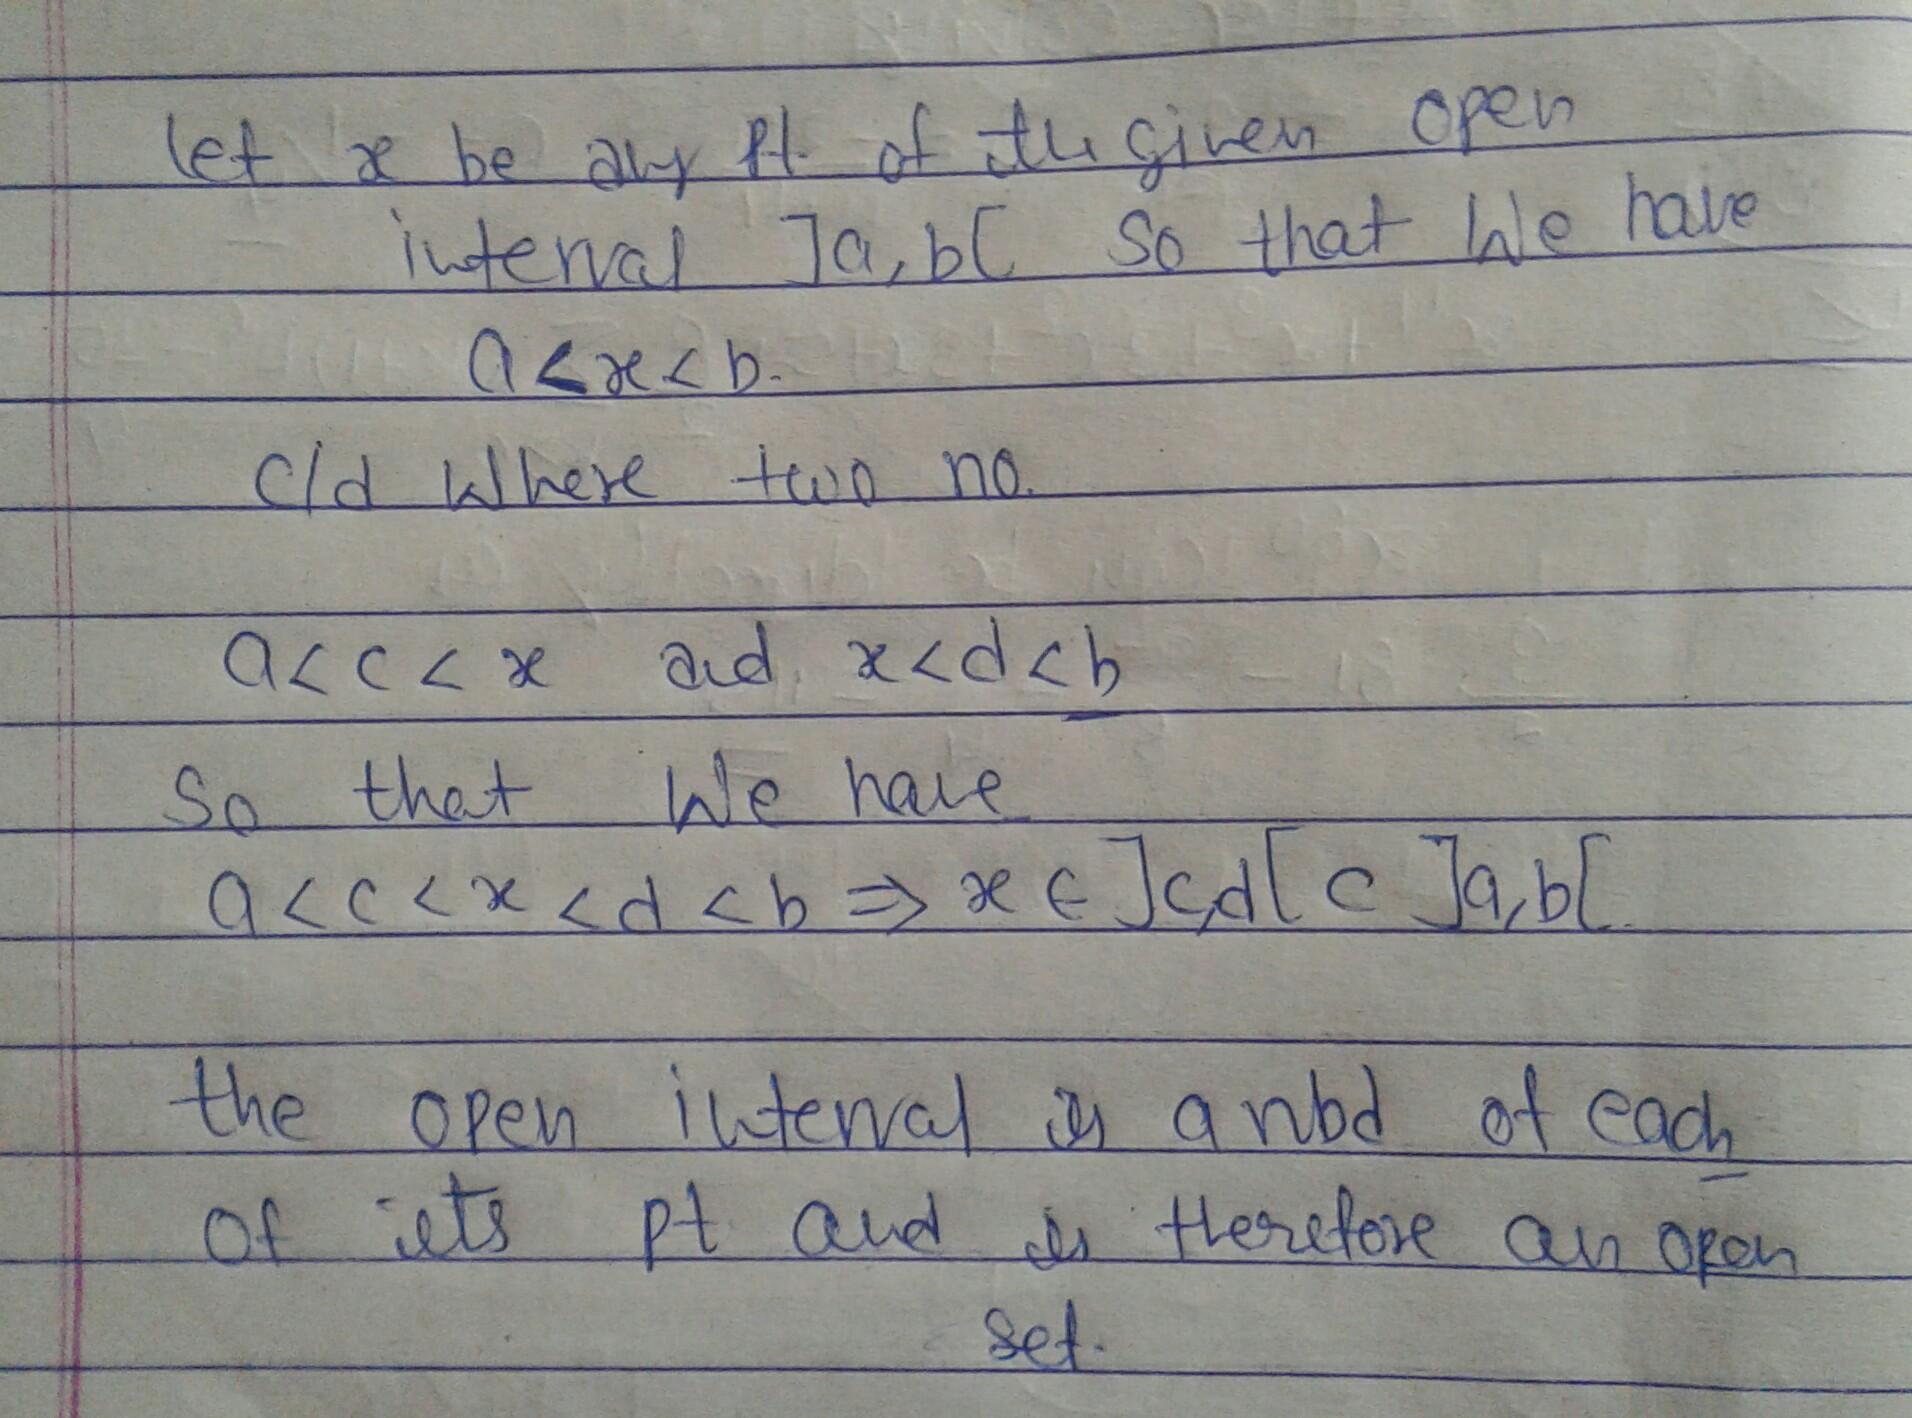 let x be any pt. of the given open
interval ]a,b[ so that We have
a<x<b.
c/d Where two no.
a<c<x and x<d<b
So that We have
a<c<x<d<b ⇒ x ∈ ]c,d[ ⊂ ]a,b[.
the open interval is a nbd of each
of iets pt and is therefore an open
set.